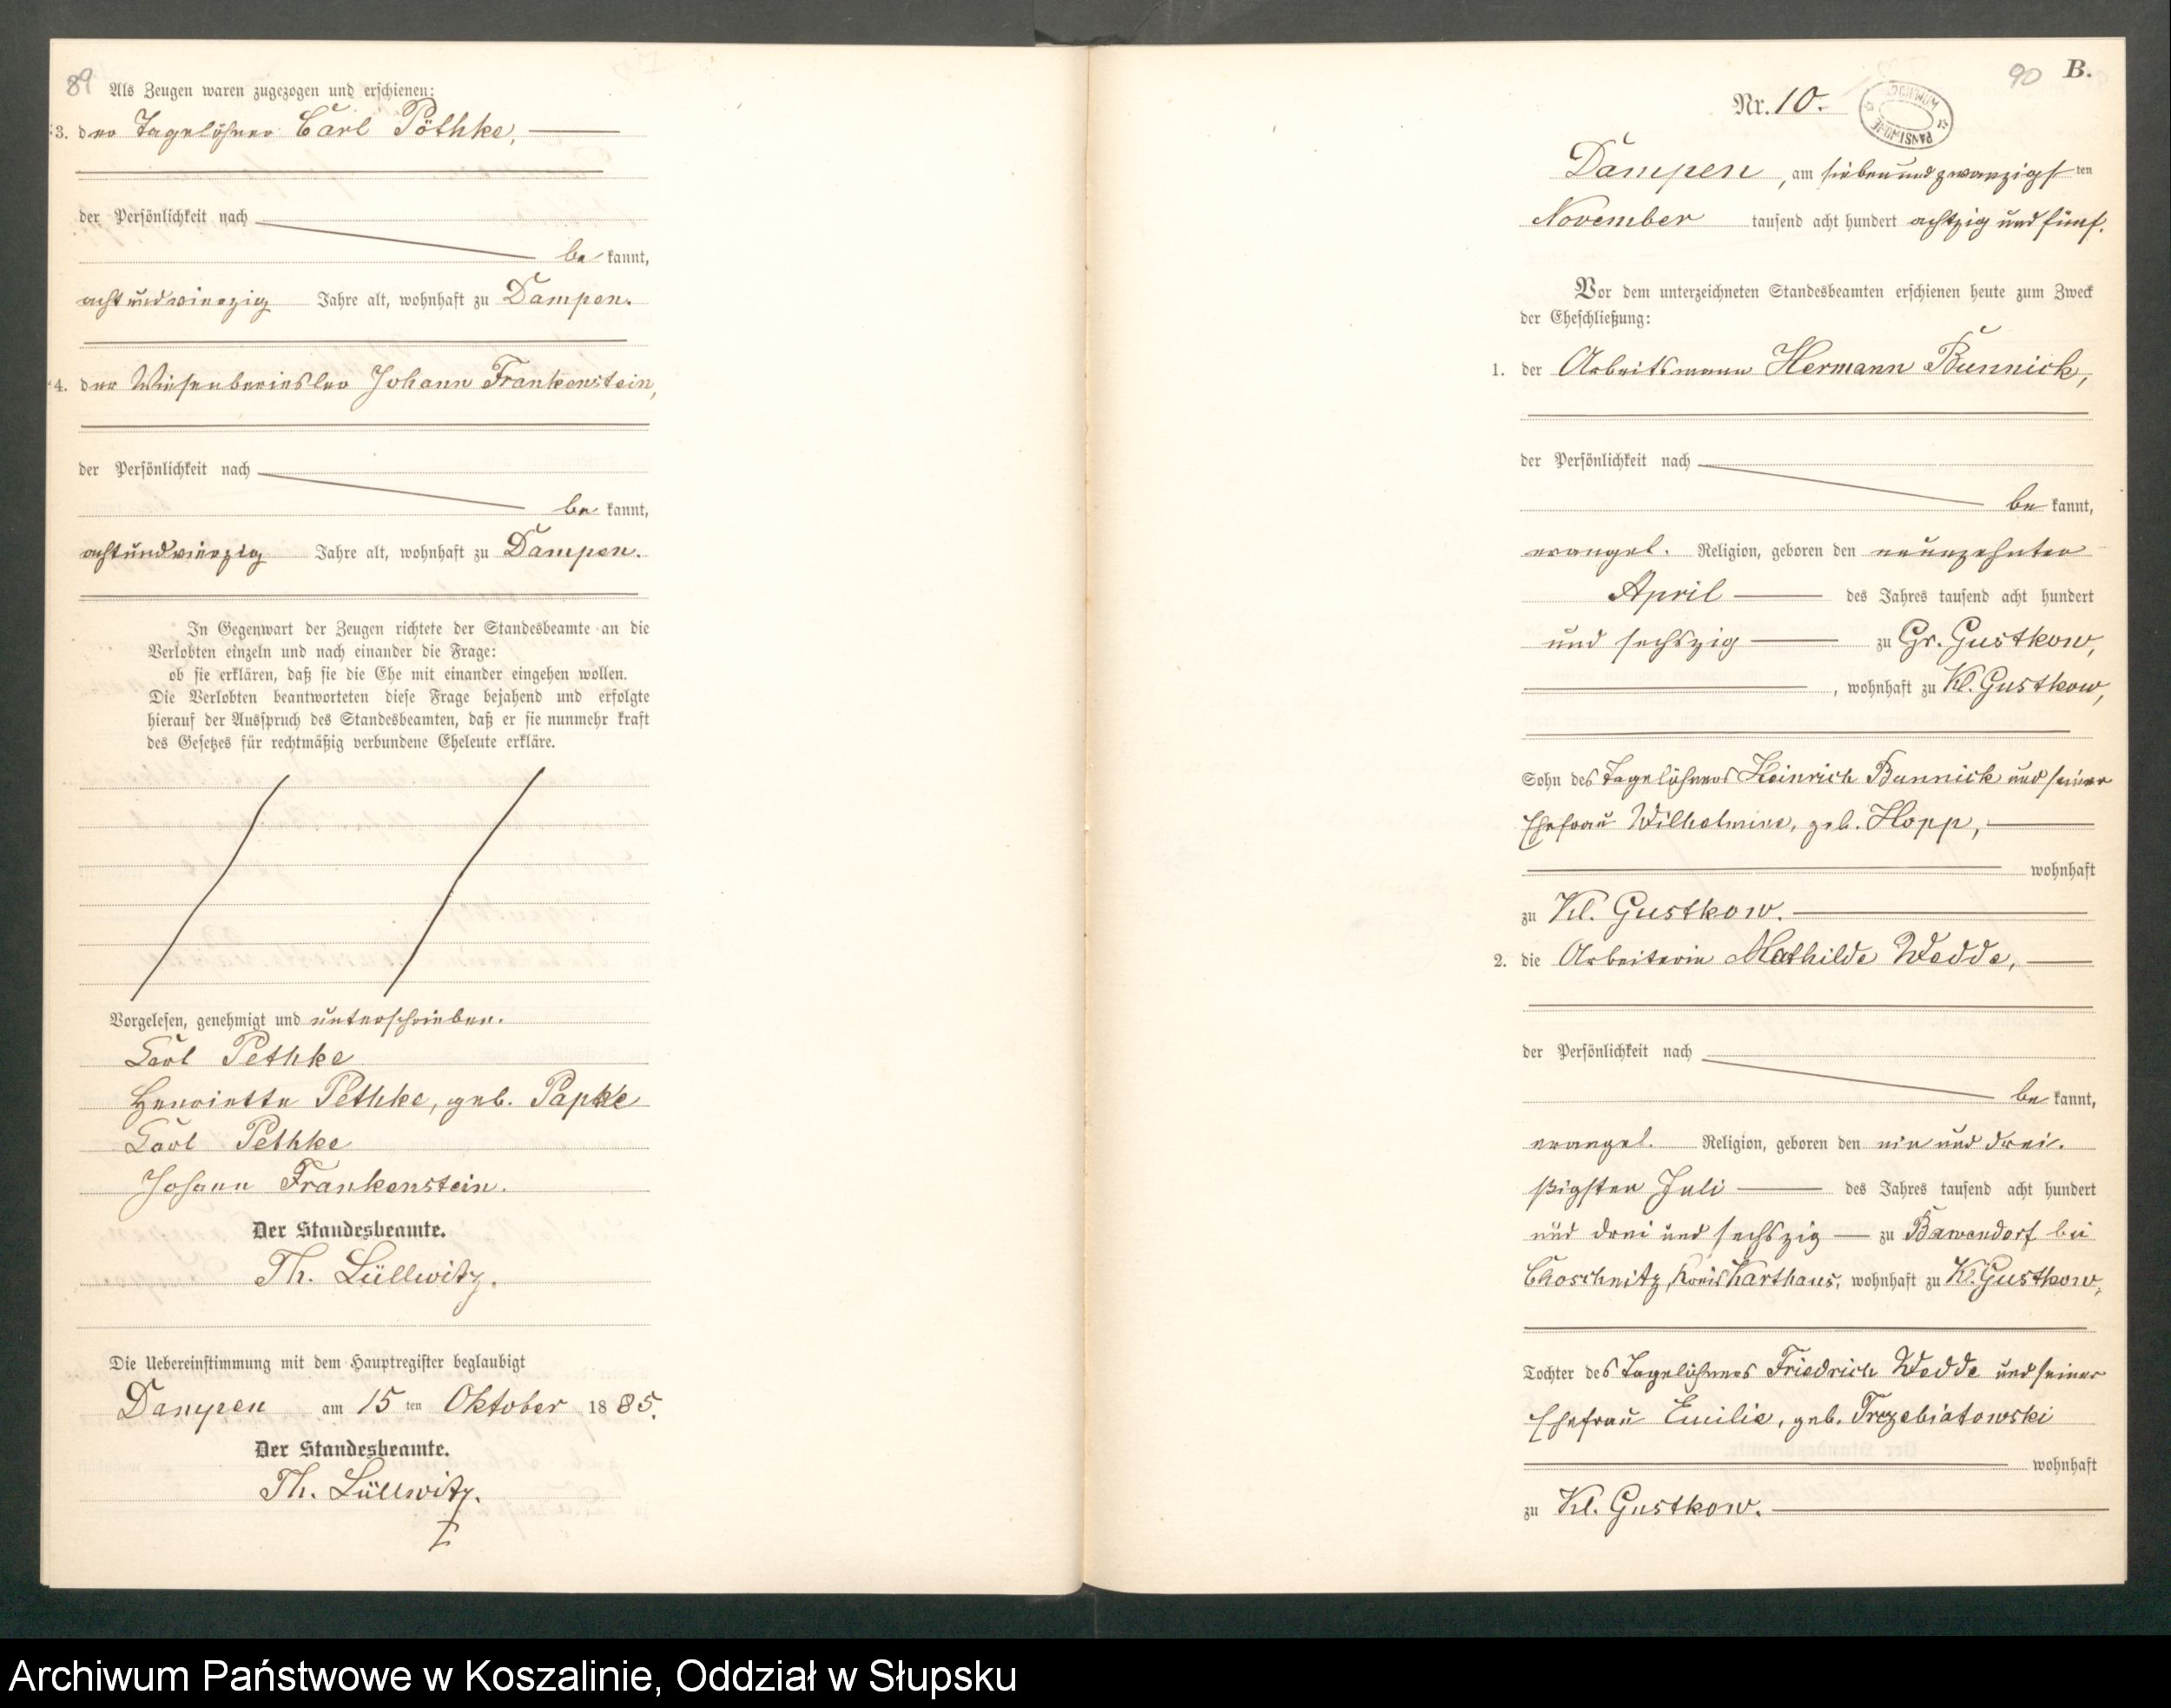 89
Als Zeugen waren zugezogen und erschienen:
3. der Tagelöhner Carl Pöthke,
der Persönlichkeit nach
be kannt,
achtundvierzig Jahre alt, wohnhaft zu Dampen.
4. der Wiesenberiesler Johann Frankenstein,
der Persönlichkeit nach
be kannt,
achtundvierzig Jahre alt, wohnhaft zu Dampen.
In Gegenwart der Zeugen richtete der Standesbeamte an die
Verlobten einzeln und nach einander die Frage:
ob sie erklären, daß sie die Ehe mit einander eingehen wollen.
Die Verlobten beantworteten diese Frage bejahend und erfolgte
hierauf der Ausspruch des Standesbeamten, daß er sie nunmehr kraft
des Gesetzes für rechtmäßig verbundene Eheleute erkläre.
Vorgelesen, genehmigt und unterschrieben.
Carl Pethke
Henriette Pethke, geb. Papke
Carl Pethke
Johann Frankenstein.
Der Standesbeamte.
Th. Lüllwitz.
Die Uebereinstimmung mit dem Hauptregister beglaubigt
Dampen am 15 ten Oktober 1885.
Der Standesbeamte.
Th. Lüllwitz.
90 B.
Nr. 10.
ARCHIWUM PAŃSTWOWE
Dampen, am siebenundzwanzigsten
November tausend acht hundert achtzig und fünf.
Vor dem unterzeichneten Standesbeamten erschienen heute zum Zweck
der Eheschließung:
1. der Arbeitsmann Hermann Bunnick,
der Persönlichkeit nach
be kannt,
evangel. Religion, geboren den neunzehnten
April des Jahres tausend acht hundert
und sechszig zu Gr. Gustkow,
, wohnhaft zu Kl. Gustkow,
Sohn des Tagelöhners Heinrich Bunnick und seiner
Ehefrau Wilhelmine, geb. Hopp,
wohnhaft
zu Kl. Gustkow.
2. die Arbeiterin Mathilde Wedde,
der Persönlichkeit nach
be kannt,
evangel. Religion, geboren den ein und drei-
ßigsten Juli des Jahres tausend acht hundert
und drei und sechszig zu Bawendorf bei
Choschnitz, Kreis Karthaus, wohnhaft zu Kl. Gustkow,
Tochter des Tagelöhners Friedrich Wedde und seiner
Ehefrau Emilie, geb. Trzebiatowski
wohnhaft
zu Kl. Gustkow.
Archiwum Państwowe w Koszalinie, Oddział w Słupsku